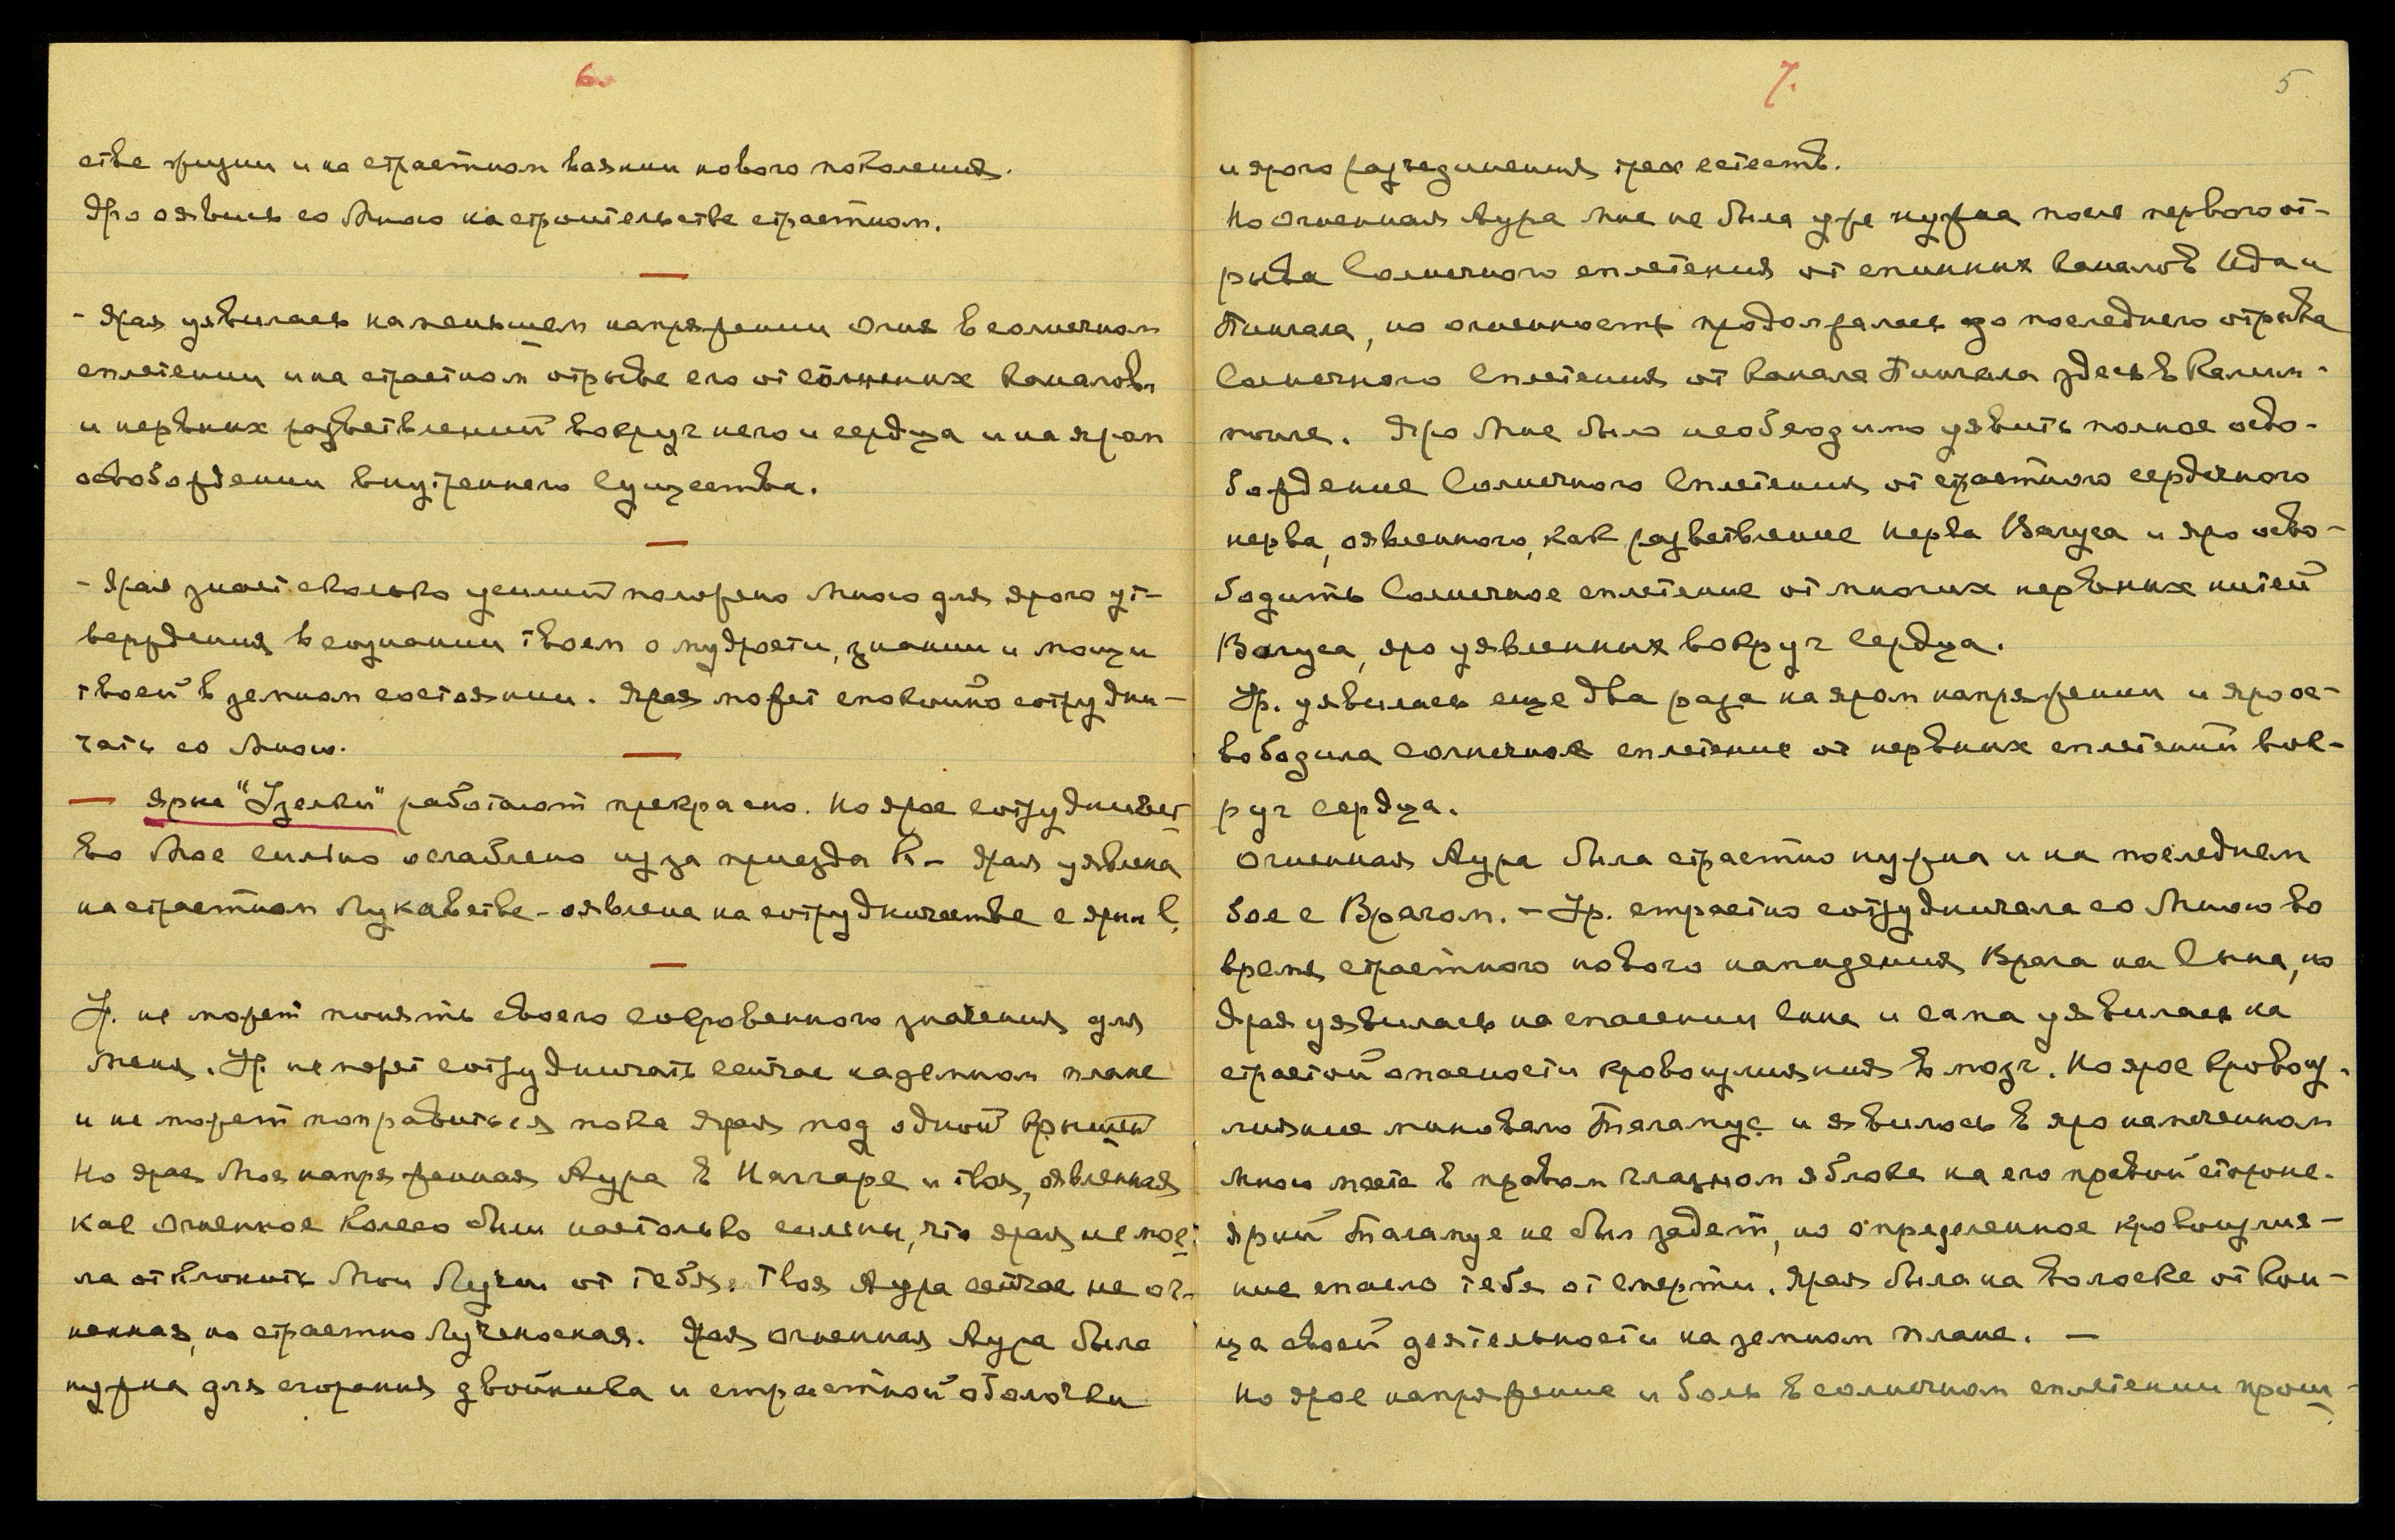 6.
стве жизни и на страстном ваянии нового поколения.
Яро оявись со Мною на строительстве страстном.
- Ярая уявилась на меньшем напряжении Огня в солнечном
сплетении и на страстном отрыве его от спинных каналов
и нервных разветвлений вокруг него и сердца и на яром
освобождении внутреннего Существа.
- Ярая знает сколько усилий положено Мною для ярого ут-
верждения в сознании твоем о мудрости, знании и мощи
твоей в земном состоянии. Ярая может спокойно сотрудни-
чать со Мною.
— Ярые "Узелки" работают прекрасно. Но ярое сотрудничест
во Мое сильно ослаблено из за приезда К- Ярая уявлена
на страстном лукавстве - оявлена на сотрудничестве с ярым С.
Ур. не может понять своего сокровенного значения для
Меня. Ур. не может сотрудничать сейчас на земном плане
и не может поправиться пока ярая под одной крышей
Но ярая Моя напряженная Аура в Наггаре и твоя, оявленная
как огненное колесо были настолько сильны, что ярая не мог-
ла отклонить Мои Лучи от тебя. Твоя Аура сейчас не ог-
ненная, но страстно Лученосная. Ярая огненная Аура была
нужна для сгорания двойника и страстной оболочки
7.
5
и ярого разъединения трех естеств.
Но Огненная Аура Мне не была уже нужна после первого от-
рыва Солнечного сплетения от спинных каналов Ида и
Пингала, но огненность продолжалась до последнего отрыва
Солнечного Сплетения от канала Пингала здесь в Калим-
понге. Яро Мне было необходимо уявить полное осво-
бождение Солнечного Сплетения от страстного сердечного
нерва, оявленного, как разветвление Нерва Вагуса и яро осво-
бодить Солнечное сплетение от многих нервных нитей
Вагуса, яро уявленных вокруг Сердца.
Ур. уявилась еще два раза на яром напряжении и яро ос-
вободила Солнечное сплетение от нервных сплетений вок-
руг Сердца.
Огненная Аура была страстно нужна и на последнем
бое с Врагом. - Ур. страстно сотрудничала со Мною во
время страстного нового нападения Врага на Сына, но
Ярая уявилась на спасении Сына и сама уявилась на
страстной опасности кровоизлияния в мозг. Но ярое кровоиз-
лияние миновало Таламус и явилось в яро намеченном
Мною месте в правом глазном яблоке на его правой стороне.
Ярый Таламус не был задет, но определенное кровоизлия-
ние спасло тебя от смерти. Ярая была на волоске от кон-
ца своей деятельности на земном плане. —
Но ярое напряжение и боль в солнечном сплетении прош-